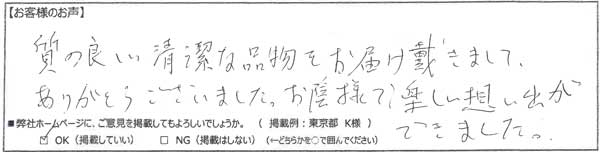 【お客様のお声】
質の良い清潔な品物をお届け戴きまして、
ありがとうございました。お蔭様で楽しい想い出が
できました。
■弊社ホームページに、ご意見を掲載してもよろしいでしょうか。 ( 掲載例：東京都 K様 )
☑ OK（掲載していい） □ NG（掲載はしない）（←どちらかを○で囲んでください）